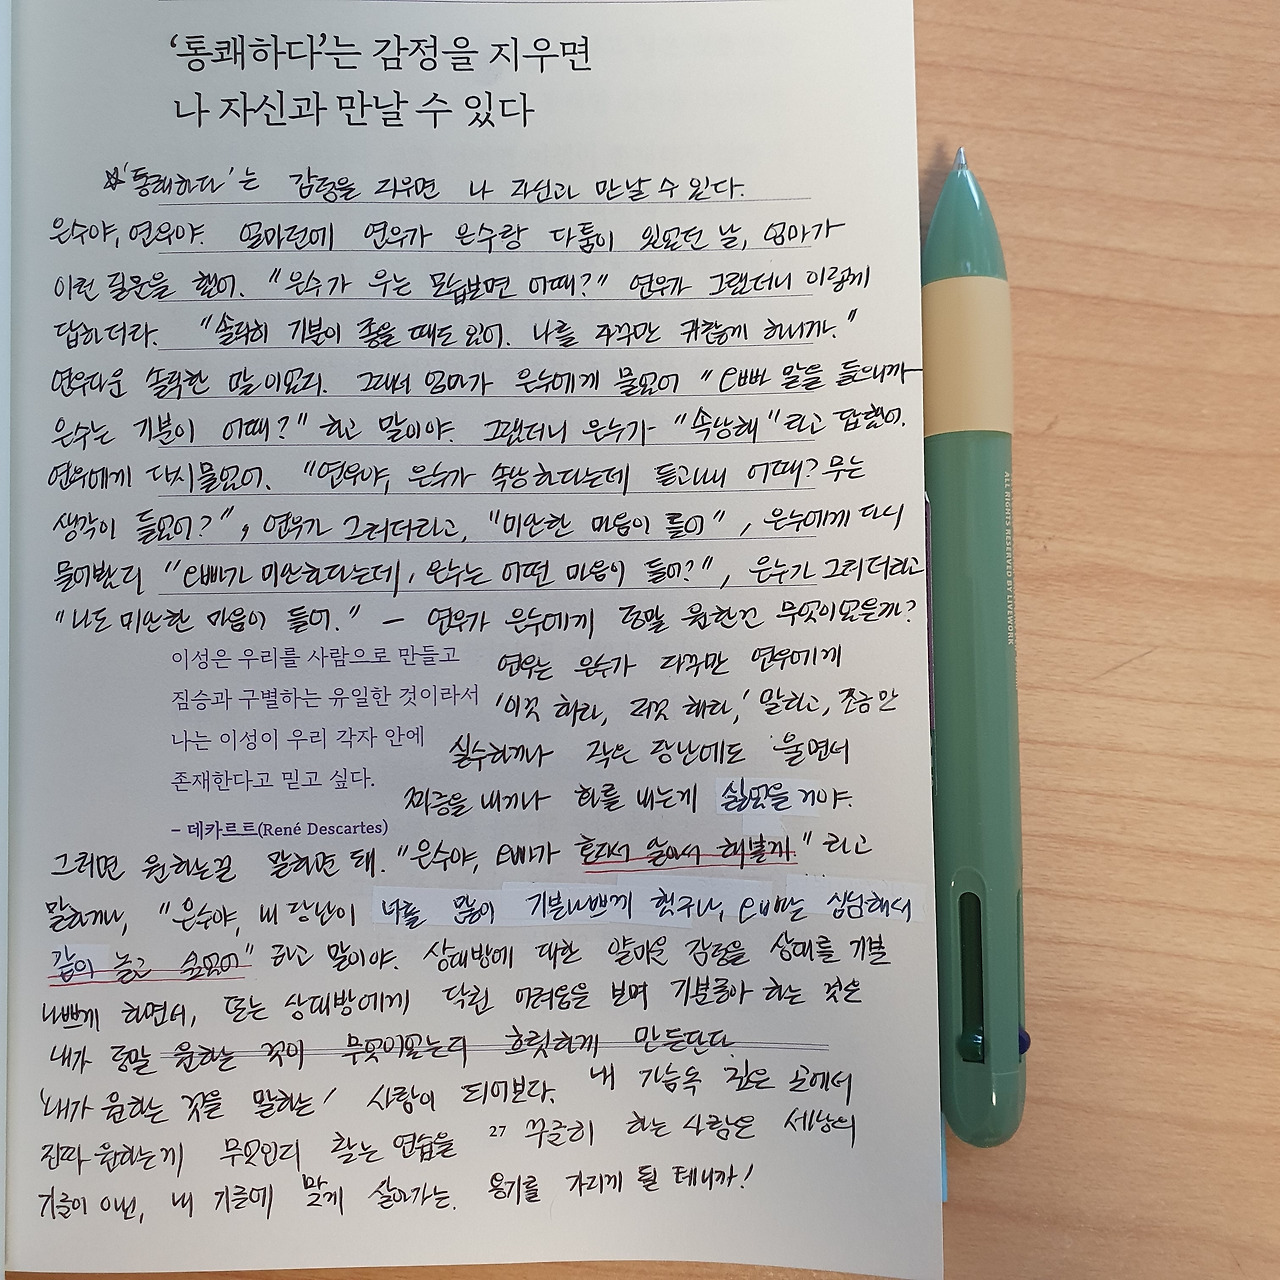 ‘통쾌하다’는 감정을 지우면
나 자신과 만날 수 있다
☆'통쾌하다'는 감정을 지우면 나 자신과 만날 수 있다.
은수야, 연우야. 얼마전에 연우가 은수랑 다툼이 있었던 날, 엄마가
이런 질문을 했어. "은수가 우는 모습보면 어때?" 연우가 그랬더니 이렇게
답하더라. "솔직히 기분이 좋을 때도 있어. 나를 자꾸만 귀찮게 하니까."
연우다운 솔직한 말이었지. 그래서 엄마가 은수에게 물었어 "오빠 말을 들으니까
은수는 기분이 어때?" 하고 말이야. 그랬더니 은수가 "속상해"라고 답했어.
연우에게 다시 물었어. "연우야, 은수가 속상하다는데 듣고나니 어때? 무슨
생각이 들었어?", 연우가 그러더라고, "미안한 마음이 들어", 은수에게 다시
물어봤지 "오빠가 미안하다는데, 은수는 어떤 마음이 들어?", 은수가 그러더라고
"나도 미안한 마음이 들어." – 연우가 은수에게 정말 원한건 무엇이었을까?
이성은 우리를 사람으로 만들고
짐승과 구별하는 유일한 것이라서
나는 이성이 우리 각자 안에
존재한다고 믿고 싶다.
– 데카르트(René Descartes)
연우는 은수가 자꾸만 연우에게
'이것 해라, 저것 해라,' 말하고, 조금만
실수하거나 작은 장난에도 울면서
짜증을 내거나 화를 내는게 싫었을거야.
그러면 원하는걸 말하면 돼. "은수야, 오빠가 혼자서 알아서 해볼게." 라고
말하거나, "은수야, 내 장난이 너를 많이 기분나쁘게 했구나, 오빠는 심심해서
같이 놀고 싶었어" 라고 말이야. 상대방에 대한 얄미운 감정을 상대를 기분
나쁘게 하면서, 또는 상대방에게 닥친 어려움을 보며 기분좋아 하는 것은
내가 정말 원하는 것이 무엇이었는지 흐릿하게 만든단다.
'내가 원하는 것을 말하는' 사람이 되어보자. 내 가슴속 깊은 곳에서
진짜 원하는게 무엇인지 찾는 연습을 꾸준히 하는 사람은 세상의
27
기준이 아닌, 내 기준에 맞게 살아가는. 용기를 가지게 될 테니까!
ALL RIGHTS RESERVED BY LIVEWORK